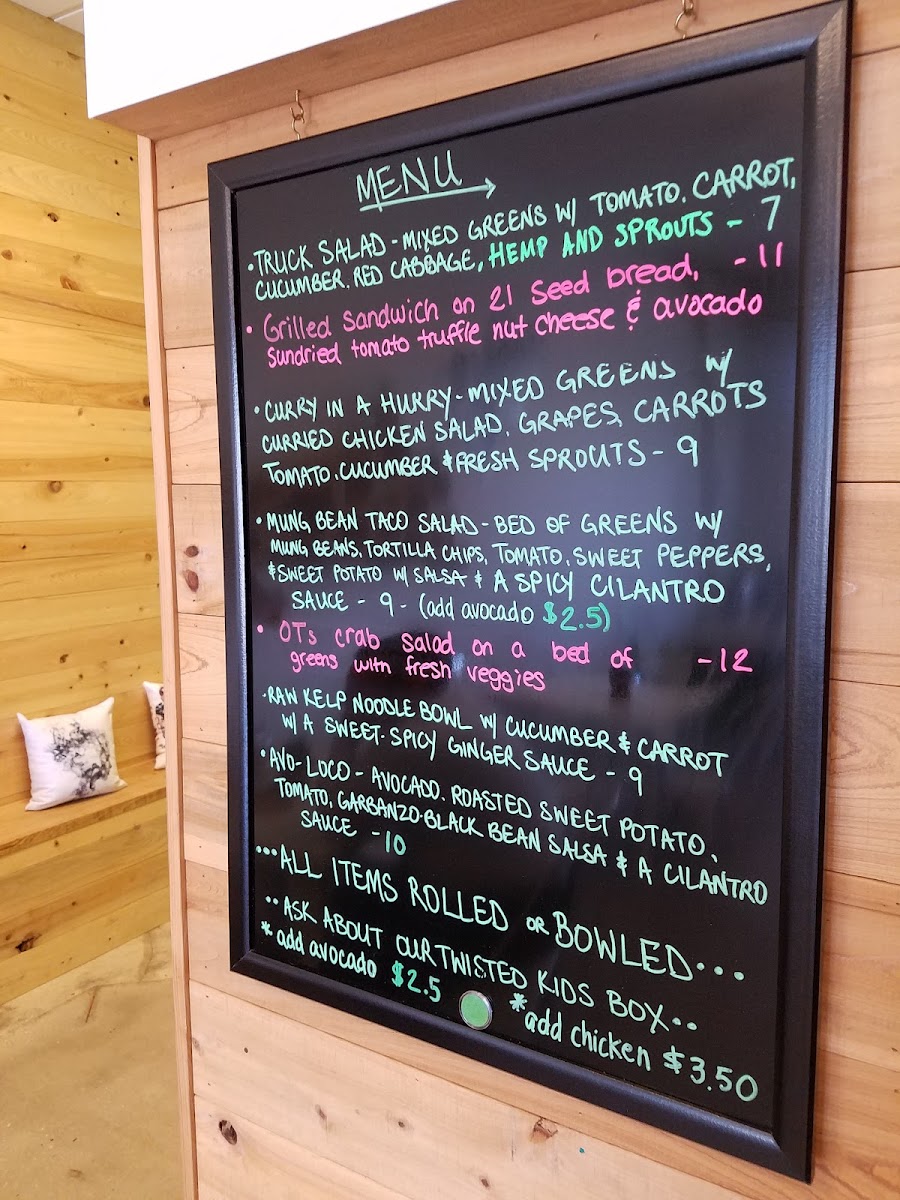 MENU
• TRUCK SALAD - MIXED GREENS W/ TOMATO. CARROT,
CUCUMBER. RED CABBAGE, HEMP AND SPROUTS - 7
• Grilled sandwich on 21 seed bread, - 11
sundried tomato truffle nut cheese & avocado
• CURRY IN A HURRY - MIXED GREENS W/
CURRIED CHICKEN SALAD, GRAPES, CARROTS
TOMATO. CUCUMBER & FRESH SPROUTS - 9
• MUNG BEAN TACO SALAD - BED OF GREENS W/
MUNG BEANS, TORTILLA CHIPS, TOMATO, SWEET PEPPERS,
& SWEET POTATO W/ SALSA & A SPICY CILANTRO
SAUCE - 9 - (add avocado $2.5)
• OTs crab salad on a bed of - 12
greens with fresh veggies
• RAW KELP NOODLE BOWL W/ CUCUMBER & CARROT
W/ A SWEET-SPICY GINGER SAUCE - 9
• AVO-LOCO - AVOCADO. ROASTED SWEET POTATO,
TOMATO, GARBANZO-BLACK BEAN SALSA & A CILANTRO
SAUCE - 10
...ALL ITEMS ROLLED OR BOWLED...
..ASK ABOUT OUR TWISTED KIDS BOX..
* add avocado $2.5
* add chicken $3.50